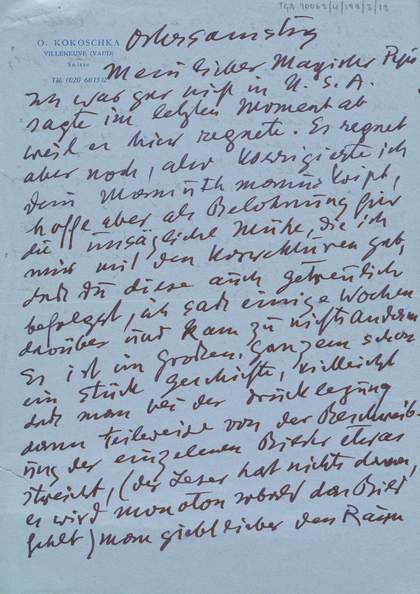 TGA 20063/4/193/3/13
O. KOKOSCHKA
VILLENEUVE (VAUD)
Suisse
Ostersamstag
Mein lieber Magister
Ich war gar nicht in U.S.A.
sagte im letzten Moment ab
weil es hier regnete. Es regnet
aber noch, also korrigierte ich
dein Mammuthmanuskript,
hoffe aber als Belohnung für
die unsägliche Mühe, die ich
mir mit den Korrekturen gab,
daß du diese auch getreulich
befolgst, ich saß einige Wochen
darüber und kam zu nichts anderem
Es ist im großen ganzen schon
ein Stück Geschichte, vielleicht
daß man bei der Drucklegung
dann teilweise von der Beschreib-
ung der einzelnen Bilder etwas
streicht, (der Leser hat nichts davon,
es wird monoton sobald das Bild
fehlt) man giebt lieber den Raum